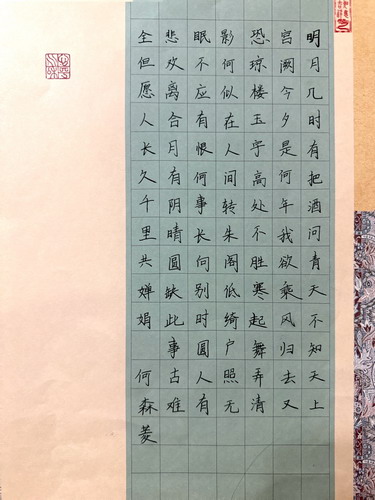 明月几时有把酒问青天不知天上
宫阙今夕是何年我欲乘风归去又
恐琼楼玉宇高处不胜寒起舞弄清
影何似在人间转朱阁低绮户照无
眠不应有恨何事长向别时圆人有
悲欢离合月有阴晴圆缺此事古难
全但愿人长久千里共婵娟
何森菱